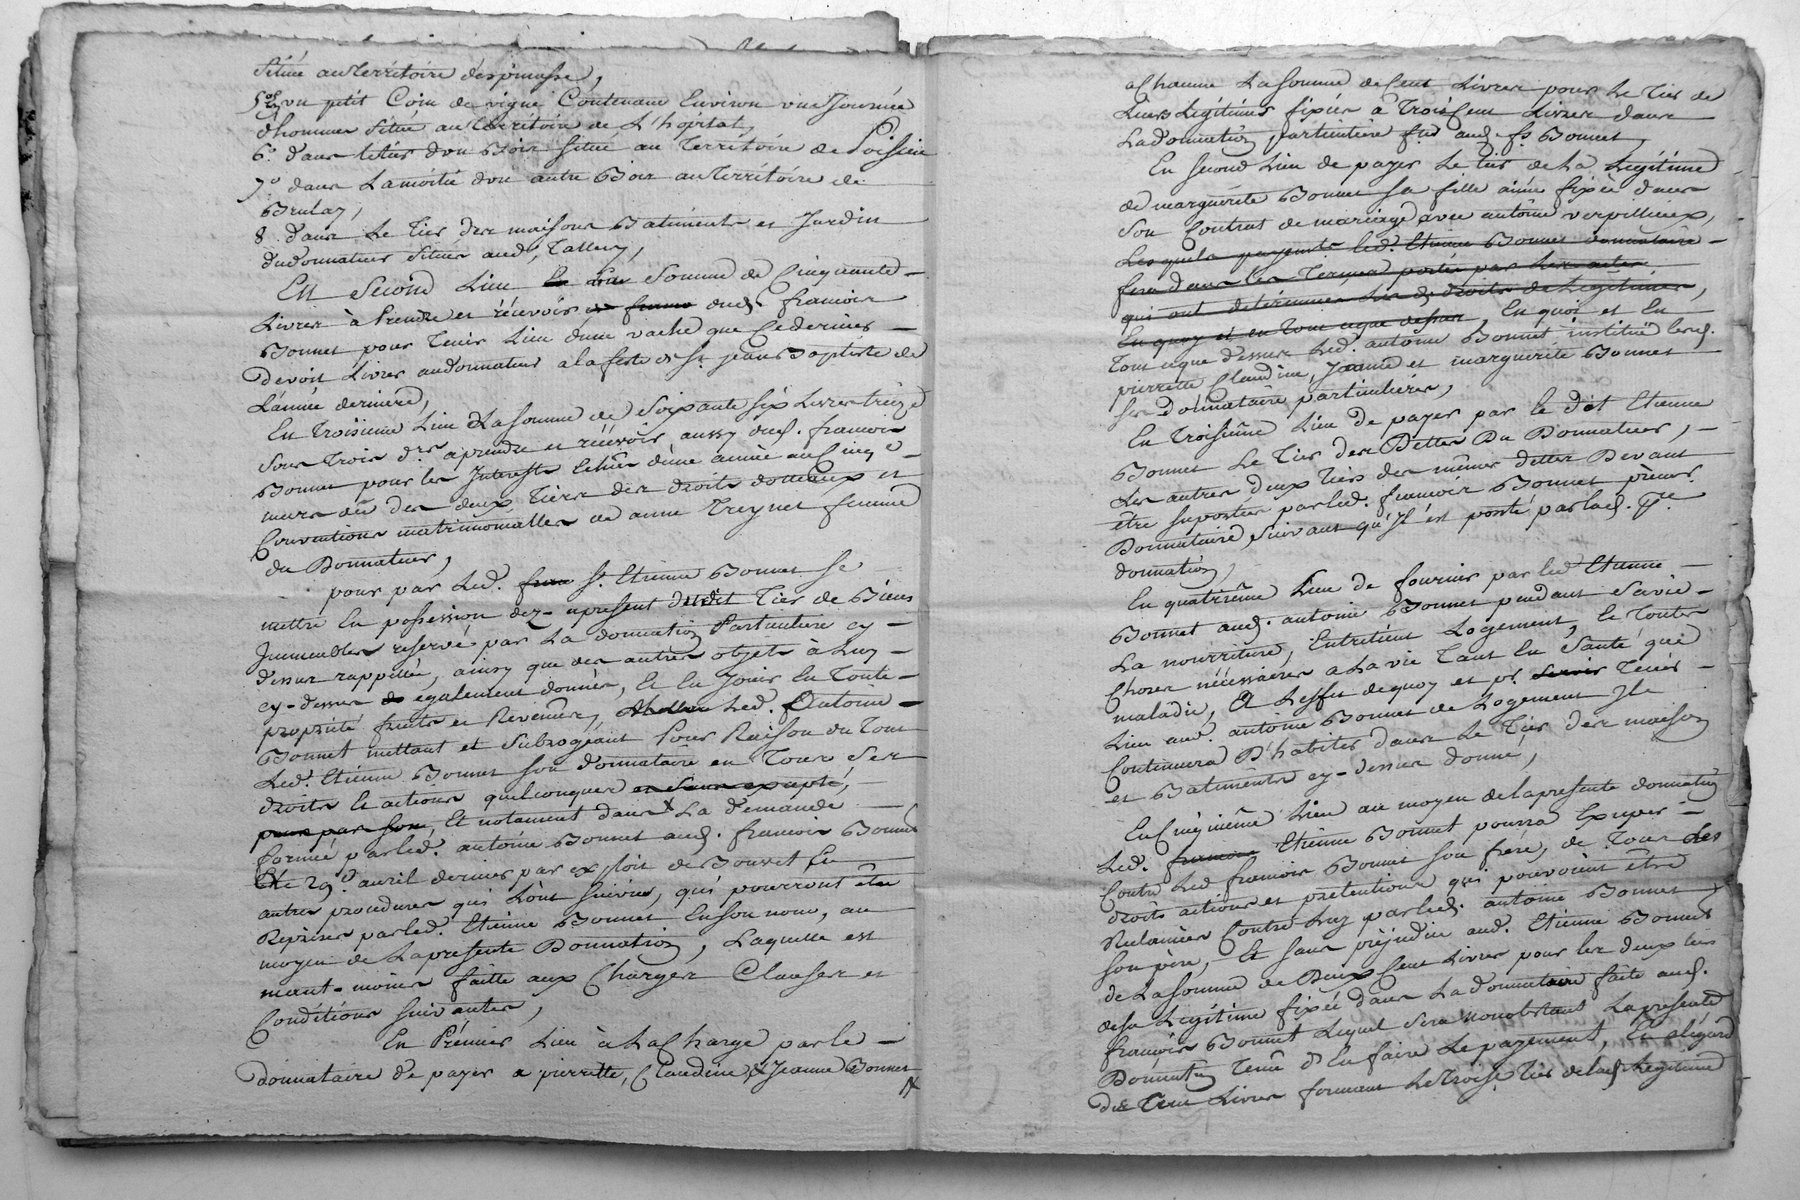 Située au territoire
5° un petit Coin de vigne Contenant Environ une Journée
d'hommes située au territoire de L'hopital,
6° dans le tier d'un Bois situé au territoire de
7° dans La moitié d'un autre Bois au territoire de
Brulay,
8 dans Le tier des maisons Batiments et Jardin
du donnateur situés aud.
En Second Lieu La Somme de Cinquante
Livres à Prendre et récévoir dud. francois
Bonnet pour tenir Lieu d'une vache que Ce dernier
devoit Livrer au donnateur a la feste de St. jean Baptiste de
L'année derniere,
En troisieme Lieu La somme de Soixante six Livres treize
Sous trois drs. a prendre et récévoir aussy dud. francois
Bonnet pour les Interests d'une année au Cinqe.
des deux tiers des droits dottaux et
Conventions matrimonialles de anne treynet femme
du Donnateur,
pour par Led. St. Etienne Bonnet se
mettre En possession dez-apresent dudit tier de Biens
Immeubles reservé par La donnation Particuliere cy-
dessus rappellée, ainsy que des autres objets à Luy
cy-dessus egalement donnés, Et En Jouir En toute
propriété fruits et Revenus, Led. Antoine
Bonnet mettant et Subrogeant Pour Raison du tout
Led. Etienne Bonnet son donnataire en tous Ses
droits Et actions quelconques en
pour par son, Et notament dans La demande
formée par Led. antoine Bonnet aud. francois Bonnet
Le 29e. avril dernier par exploit de Bouvet Et
autres procedures qui L'ont suivie, qui pourront être
Reprises par Led. Etienne Bonnet En son nom, au
moyen de La presente Donnation, Laquelle est
néant-moins faitte aux Charges Clauses et
Conditions suivantes,
En Prémier Lieu à La Charge par le
donnataire de payer a pierrette, Claudine, & Jeanne Bonnet
a Chacune La somme de Cent Livres pour Le tier de
Leurs Légitimes fixées à trois Cent Livres dans
La donnation particuliere aud. fs. Bonnet
En second Lieu de payer Le tier de La Légitime
de marguerite Bonnet sa fille ainée fixée dans
son Contrat de mariage avec antoine verpillieux,
Lesquels payements led. Etienne Bonnet donnataire
fera dans les termes portés par les actes
qui ont determinés Les d. droits de Légitimes,
En quoy et en tout ce que dessus, En quoi et En
tout ce que dessus Led. antoine Bonnet institue lesd.
pierrette Claudine, Jeanne et marguerite Bonnet
ses donnataire particulieres,
En troisième Lieu de payer par le dit Etienne
Bonnet Le tier des Dettes du Donnateur,
Les autres deux tiers des mêmes dettes Devant
être suportées par Led. francois Bonnet
Donnataire, suivant qu'Il est porté par lad. pte.
donnation,
En quatrième Lieu de fournir par led. Etienne
Bonnet aud. antoine Bonnet pendant sa vie
La nourriture, Entretient Logement, Et toutes
Choses nécéssaires a La vie tant En santé que
maladie, A L'effet de quoy et pr. tenir
Lieu aud. antoine Bonnet de Logement Il
Continuera D'habiter dans Le tier des maison
et Batiments cy-dessus donné,
En Cinqième Lieu au moyen de la presente donnation
Led. Etienne Bonnet pourra Exiger
Contre Led. francois Bonnet son frère, de tous les
droits actions et pretentions qui pouvoient être
Reclamées Contre Luy par led. antoine Bonnet
son père, Et sans préjudice aud. Etienne Bonnet
de La somme de Deux Cent Livres pour Les deux tiers
de sa Légitime fixée dans La donnation faite aud.
francois Bonnet Lequel sera nonobstant La presente
Donnation tenu d'En faire Le payement, Et a l'égard
des Cent Livres formant Le troise. tier de lad. Légitime